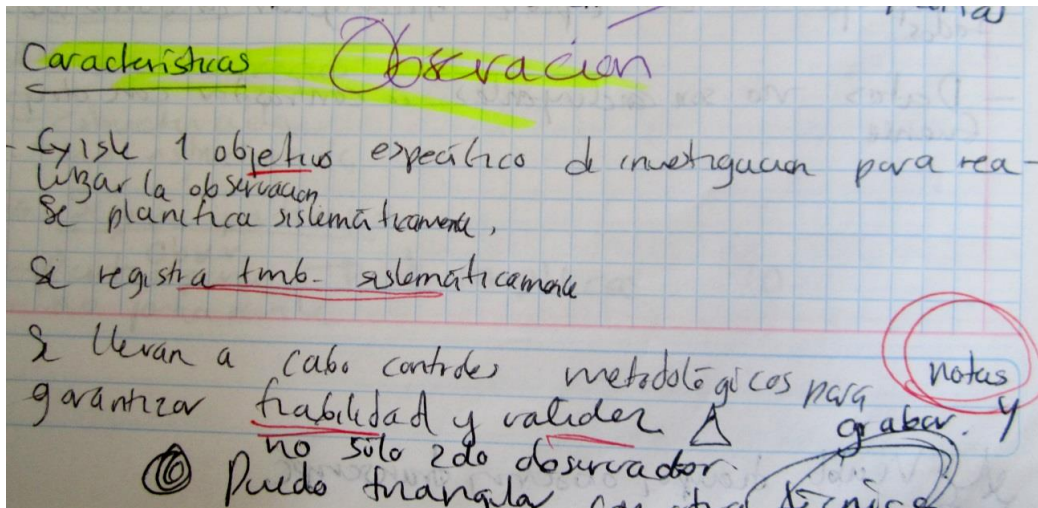 Características Observación
- Existe 1 objetivo específico d investigación para rea-
lizar la observación
Se planifica sistemáticamente.
Se registra tmb. sistemáticamente
Se llevan a cabo controles metodológicos para notas y
garantizar fiabilidad y validez. grabar.
no sólo 2do observador.
Puedo triangular con otra técnica